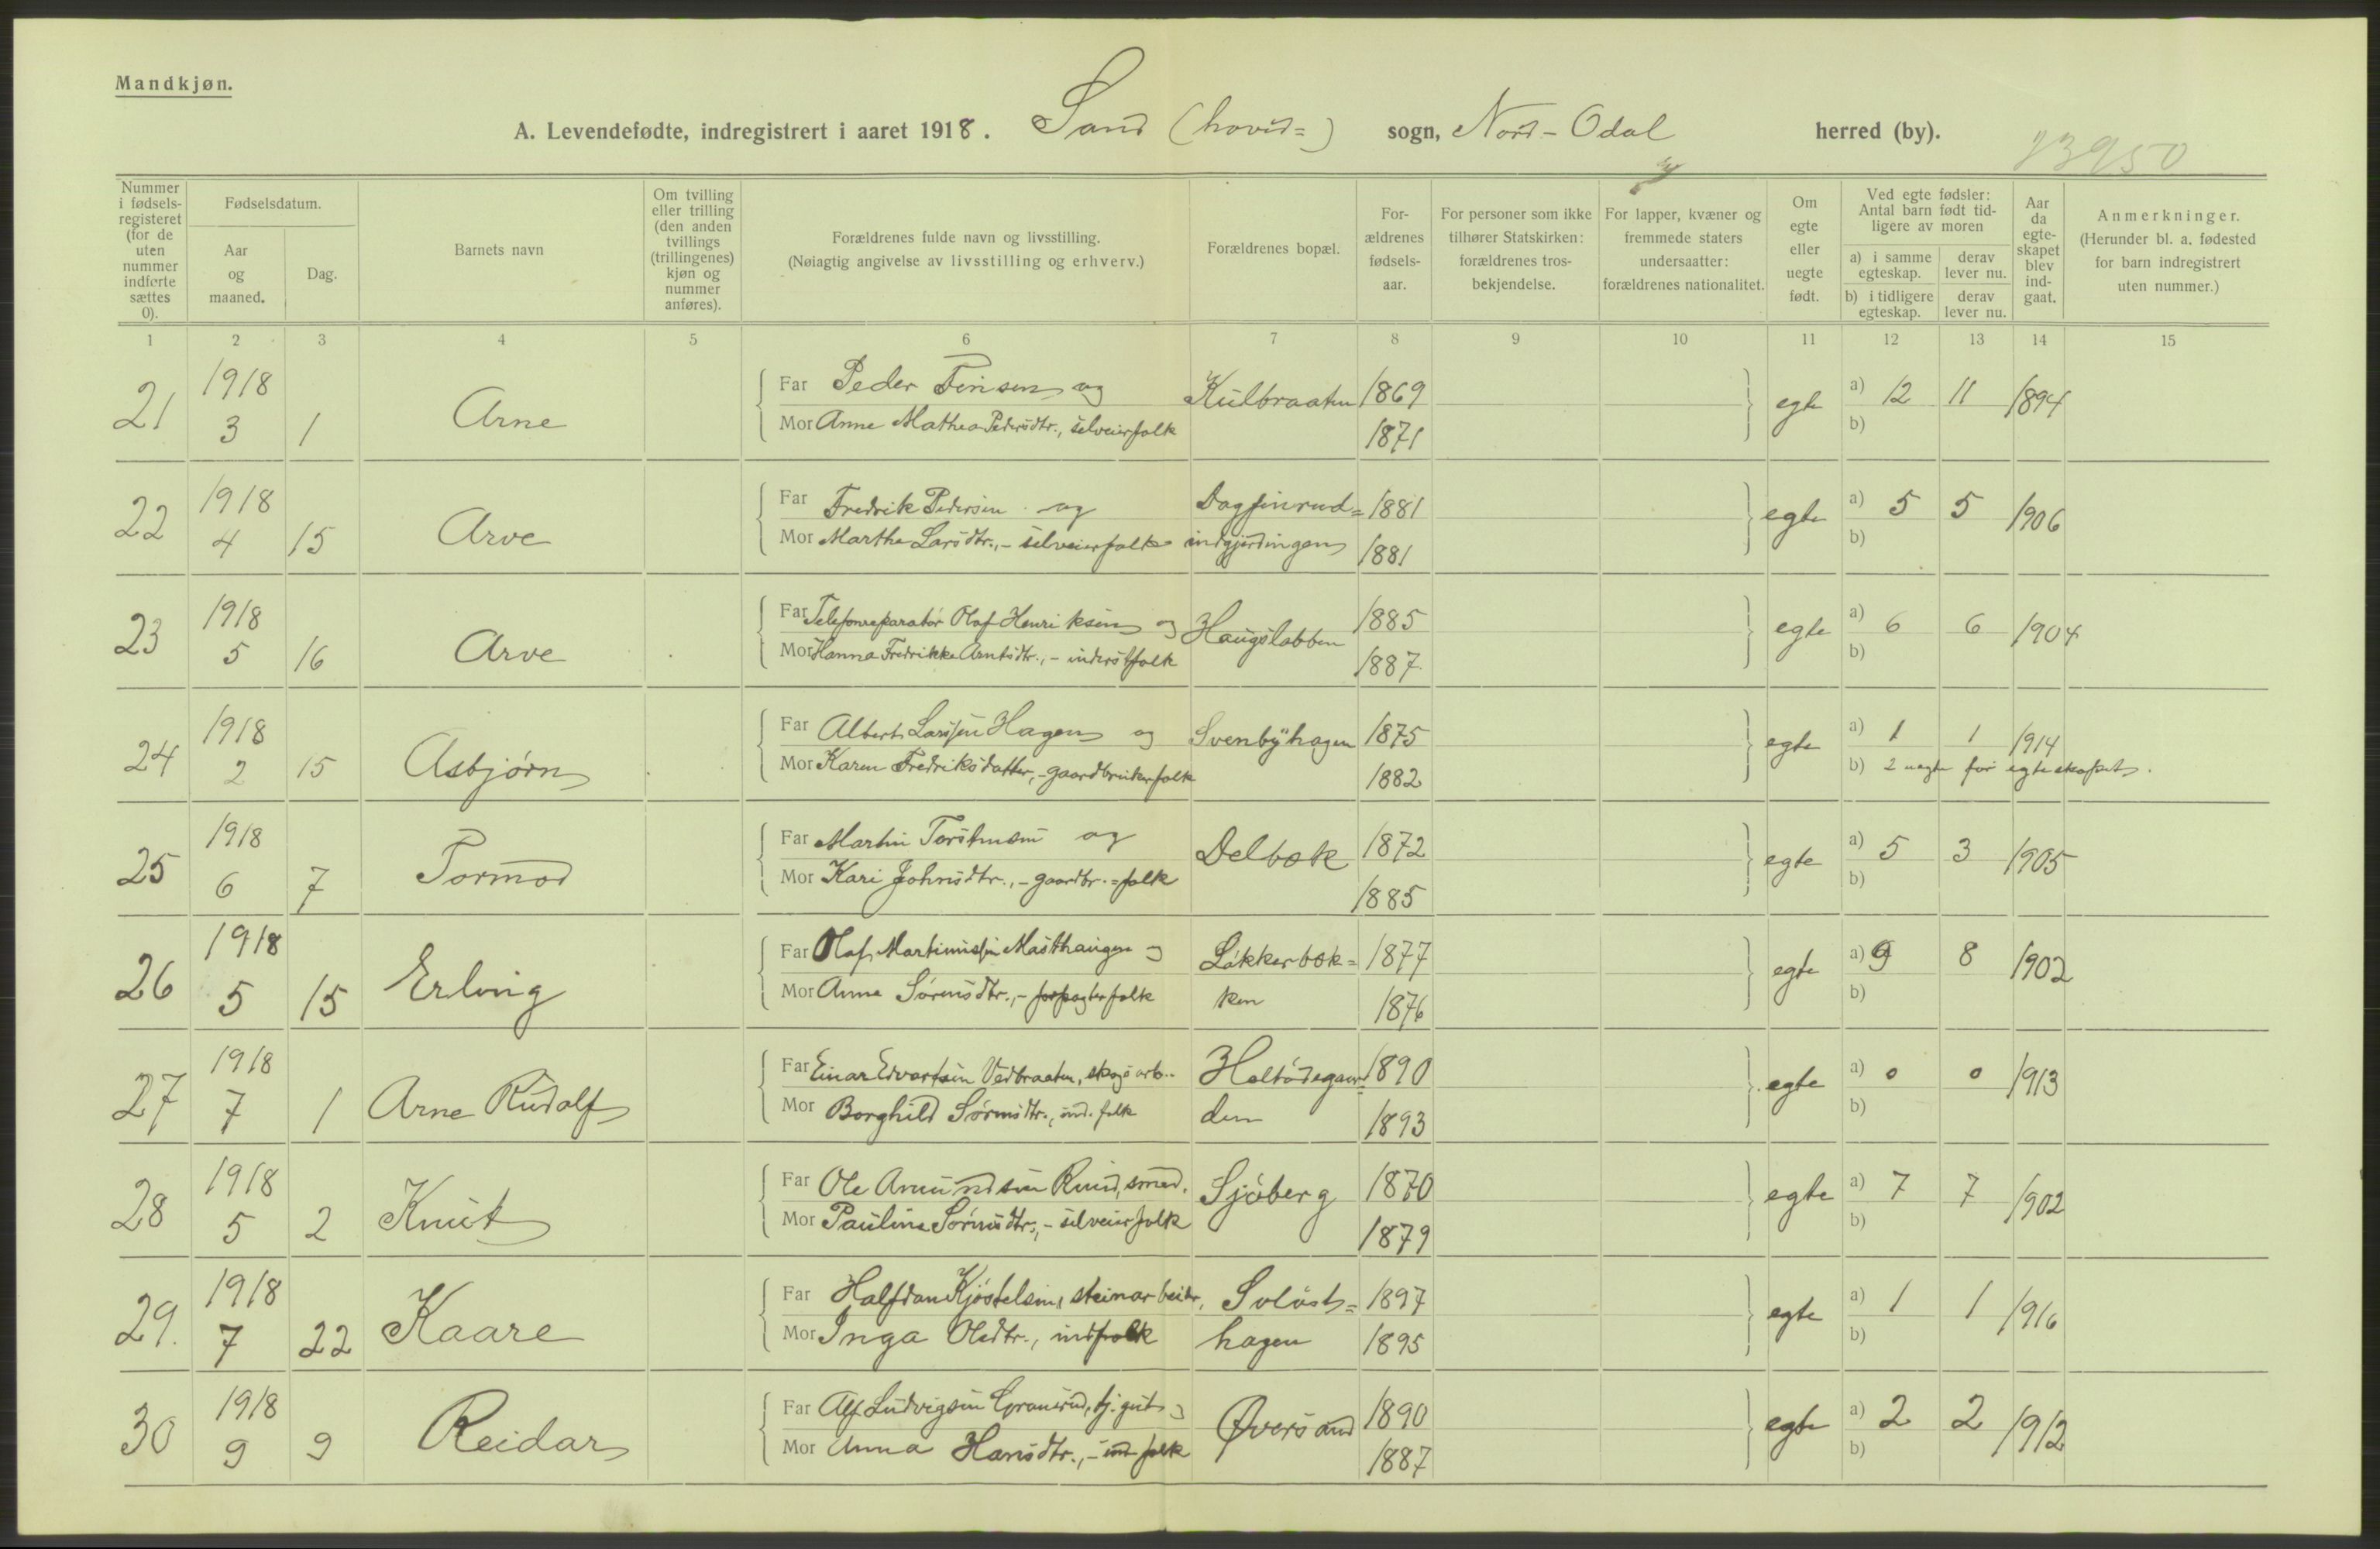 Mandkjøn.
A. Levendefødte, indregistrert i aaret 1918. Sand (hovid=) sogn, Nord-Odal herred (by).
23950
Nummer i fødselsregisteret (for de uten nummer indførte sættes 0).
Fødselsdatum.
Aar og maaned.
Dag.
Barnets navn
Om tvilling eller trilling (den anden tvillings (trillingenes) kjøn og nummer anføres).
Forældrenes fulde navn og livsstilling.
(Nøiagtig angivelse av livsstilling og erhverv.)
Forældrenes bopæl.
For-ældrenes fødsels-aar.
For personer som ikke tilhører Statskirken: forældrenes tros-bekjendelse.
For lapper, kvæner og fremmede staters undersaatter: forældrenes nationalitet.
Om egte eller uegte født.
Ved egte fødsler: Antal barn født tid-ligere av moren
a) i samme egteskap. derav lever nu.
b) i tidligere egteskap. derav lever nu.
Aar da egte-skapet blev ind-gaat.
Anmerkninger.
(Herunder bl. a. fødested for barn indregistrert uten nummer.)
1 2 3 4 5 6 7 8 9 10 11 12 13 14 15
21 1918 3 1 Arne
Far Peder Finsen og Kulbraaten 1869 egte a) 12 11 1894
Mor Anne Mathea Pedersdtr., selveierfolk 1871 b)
22 1918 4 15 Arve
Far Fredrik Pedersen og Dagfinrud= 1881 egte a) 5 5 1906
Mor Marthe Larsdtr., - selveierfolk indgjerdingen 1881 b)
23 1918 5 16 Arve
Far Telefonreparatör Olaf Henriksen og Haugslabben 1885 egte a) 6 6 1904
Mor Hanna Fredrikke Arntsdtr., - inderstfolk 1887 b)
24 1918 2 15 Asbjørn
Far Albert Larssen Hagen og Svenbyhagen 1875 egte a) 1 1 1914
Mor Karen Fredriksdatter, - gaardbrukerfolk 1882 b) 2 uegte før egteskapet.
25 1918 6 7 Tormod
Far Martin Torstensen og Delbæk 1872 egte a) 5 3 1905
Mor Kari Johnsdtr., - gaardbr.=folk 1885 b)
26 1918 5 15 Erling
Far Olaf Martinussen Masthaugen og Løkkerbæk= 1877 egte a) 9 8 1902
Mor Anne Sørensdtr., - forpagterfolk ken 1876 b)
27 1918 7 1 Arne Rudolf
Far Einar Edvartsen Vedbraaten, skogsarb.. Holtødegaar= 1890 egte a) 0 0 1913
Mor Borghild Sørensdtr., ind. folk den 1893 b)
28 1918 5 2 Knut
Far Ole Amundsen Ruud, smed. Sjöberg 1870 egte a) 7 7 1902
Mor Pauline Sørensdtr., - selveierfolk 1879 b)
29. 1918 7 22 Kaare
Far Halfdan Kjøstelsen, steinarbeider, 1897 egte a) 1 1 1916
Mor Inga Olsdtr., indfolk hagen 1895 b)
30 1918 9 9 Reidar
Far Alf Ludvigsen Granerud, tj. gut og Øversand 1890 egte a) 2 2 1912
Mor Anna Hansdtr., - ind folk 1887 b)